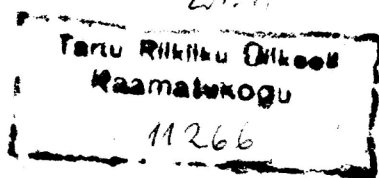 Tartu Riikliku Ülikooli
Raamatukogu
11266